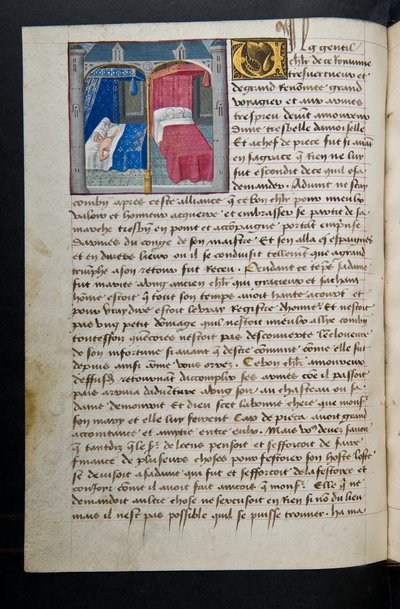 Ung gentil
chlr de ce royaume
tresvertueux et
de grand renomee grand
voyagier et aux armes
trespreu devint amoureux
dune tresbelle damoiselle
Et a chef de piece fut si avāt
en sa grace q̄ rien ne luy
fut escondit de ce quil osa
demander. Advint ne scay
combiē apres ceste alliance q̄ ce bon chlr pour mieulx
valoir et honneur acquerre et embrasser se partit de sa
marche tresbiē en point et accōpaigne portāt emprinse
darmes du congie de son maistre Et sen alla es espaignes
et en divers lieux ou il se conduisit tellement que a grand
triūphe a son retour fut receu. Pendant ce tēps sa dame
fut mariee a ung ancien chlr qui gracieux et sachant
hōme estoit q̄ tout son temps avoit hante a court et
pour vray dire estoit le vray registre dhonneʳ. Et nestoit
pas ung petit dōmage quil nestoit mieulx allye combiē
toutesfois quencores nestoit pas descouverte lencloueure
de son infortune si avant q̄ destre cōmune cōme elle fut
depuis ainsi cōme vous orrez. Ce bon chlr amoureux
dessusdˢ retournant daccomplir ses armes cōe il passoit
pais arriva dadventure ung soir au chasteau ou sa
dame demouroit Et dieu scet la bonne chiere que monsʳ
son mary et elle luy feirent Car de pieca avoit grand
accointance et amytie entre eulx. Mais voˢ devez savoir
q̄ tandis q̄ le sʳ de leens pensoit et sefforcoit de faire
finance de plusieurs choses pour festoier son hoste loste
se devisoit a sa dame qui fut et sefforcoit de la festoier et
conioyr cōme il avoit fait aincois q̄ monsʳ. Elle q̄ ne
demandoit aultre chose ne sexcusoit en rien si nō du lieu
mais il nest pas possible quil se puisse trouver. ha ma